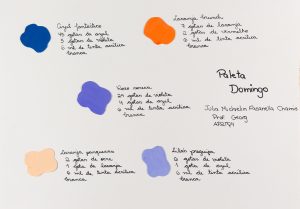 Azul fantástico
45 gotas de azul
5 gotas de violeta
6 ml de tinta acrílica
branca
Laranja
7 gotas de laranja
2 gotas de vermelho
6 ml de tinta acrílica
branca
Roxo
21 gotas de violeta
4 gotas de azul
6 ml de tinta acrílica
branca
Paleta
Domingo
Júlia
Prof. Georg
Laranja
2 gotas de ocre
1 gota de laranja
6 ml de tinta acrílica
branca
Lilás preguiça
6 gotas de violeta
1 gota de azul
6 ml de tinta acrílica
branca